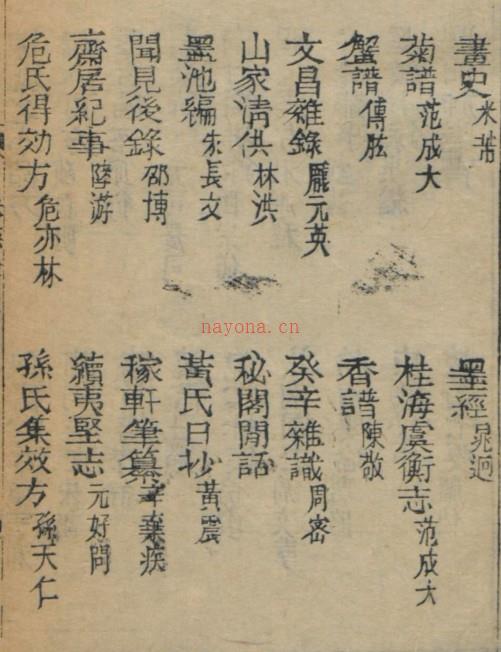 畫史米芾
墨經晁迥
菊譜范成大
桂海虞衡志范成大
蟹譜傅肱
香譜陳敬
文昌雜錄龐元英
癸辛雜識周密
山家清供林洪
秘閣閒話
墨池編朱長文
黃氏日抄黃震
聞見後錄邵博
稼軒筆纂辛棄疾
齋居紀事陸游
續夷堅志元好問
危氏得効方危亦林
孫氏集效方孫天仁
nayona.cn